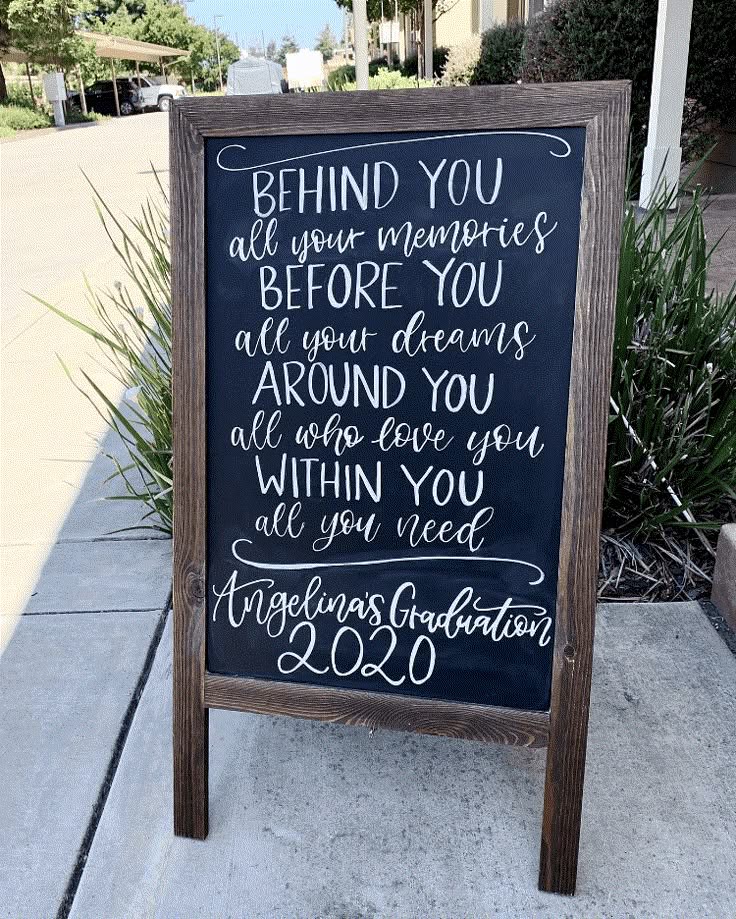 BEHIND YOU
all your memories
BEFORE YOU
all your dreams
AROUND YOU
all who love you
WITHIN YOU
all you need
Angelina's Graduation
2020